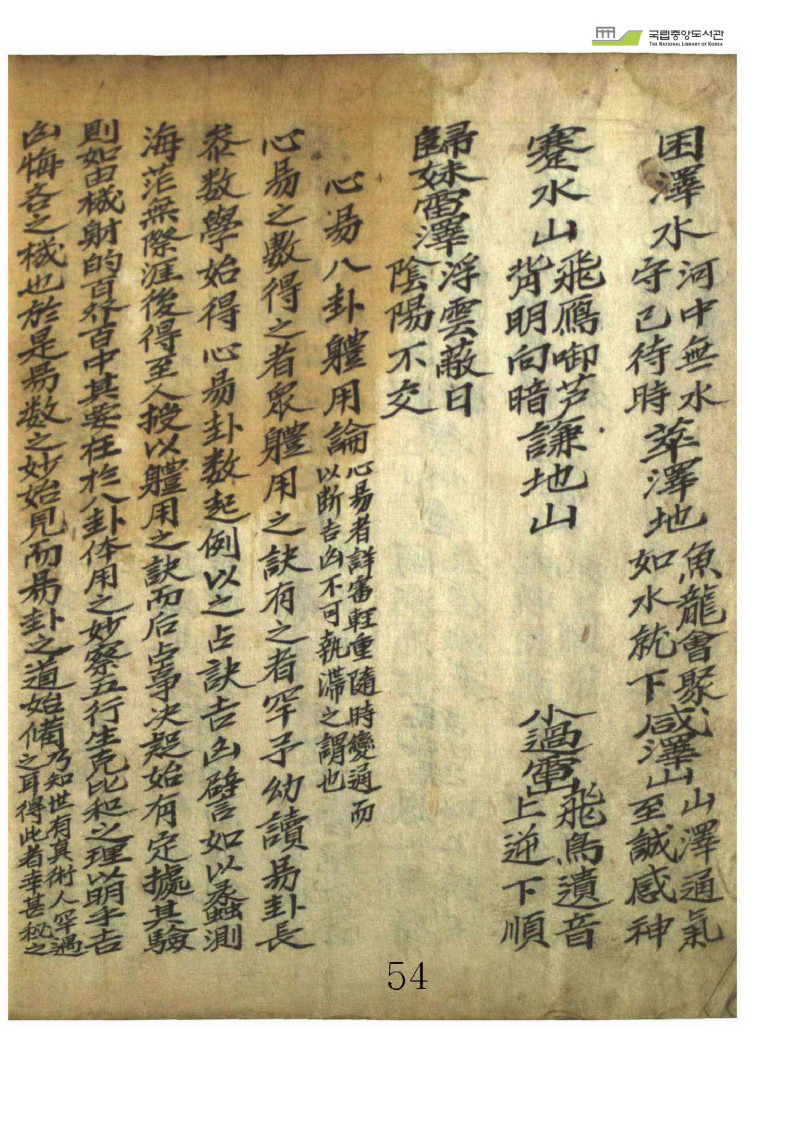 국립중앙도서관
THE NATIONAL LIBRARY OF KOREA
困澤水 河中無水 守己待時 萃澤地 魚龍會聚 如水就下 咸澤山 山澤通氣 至誠感神
蹇水山 飛鴈啣芦 背明向暗 謙地山 小過雷山 飛鳥遺音 上逆下順
歸妹雷澤 浮雲蔽日 陰陽不交
心易八卦體用論 心易者詳審輕重隨時變通而以断吉凶不可執滯之謂也
心易之數得之者衆體用之訣有之者罕予幼讀易卦長
叅数學始得心易卦数起例以之占訣吉凶譬如以蠡測
海茫無際涯後得至人授以體用之訣而后占事决疑始有定據其驗
則如由機射的百發百中其要在於八卦体用之妙察五行生克比和之理以明乎吉
凶悔吝之機也於是易数之妙始見而易卦之道始備 乃知世有真術人罕遇之耳得此者幸甚秘之
54